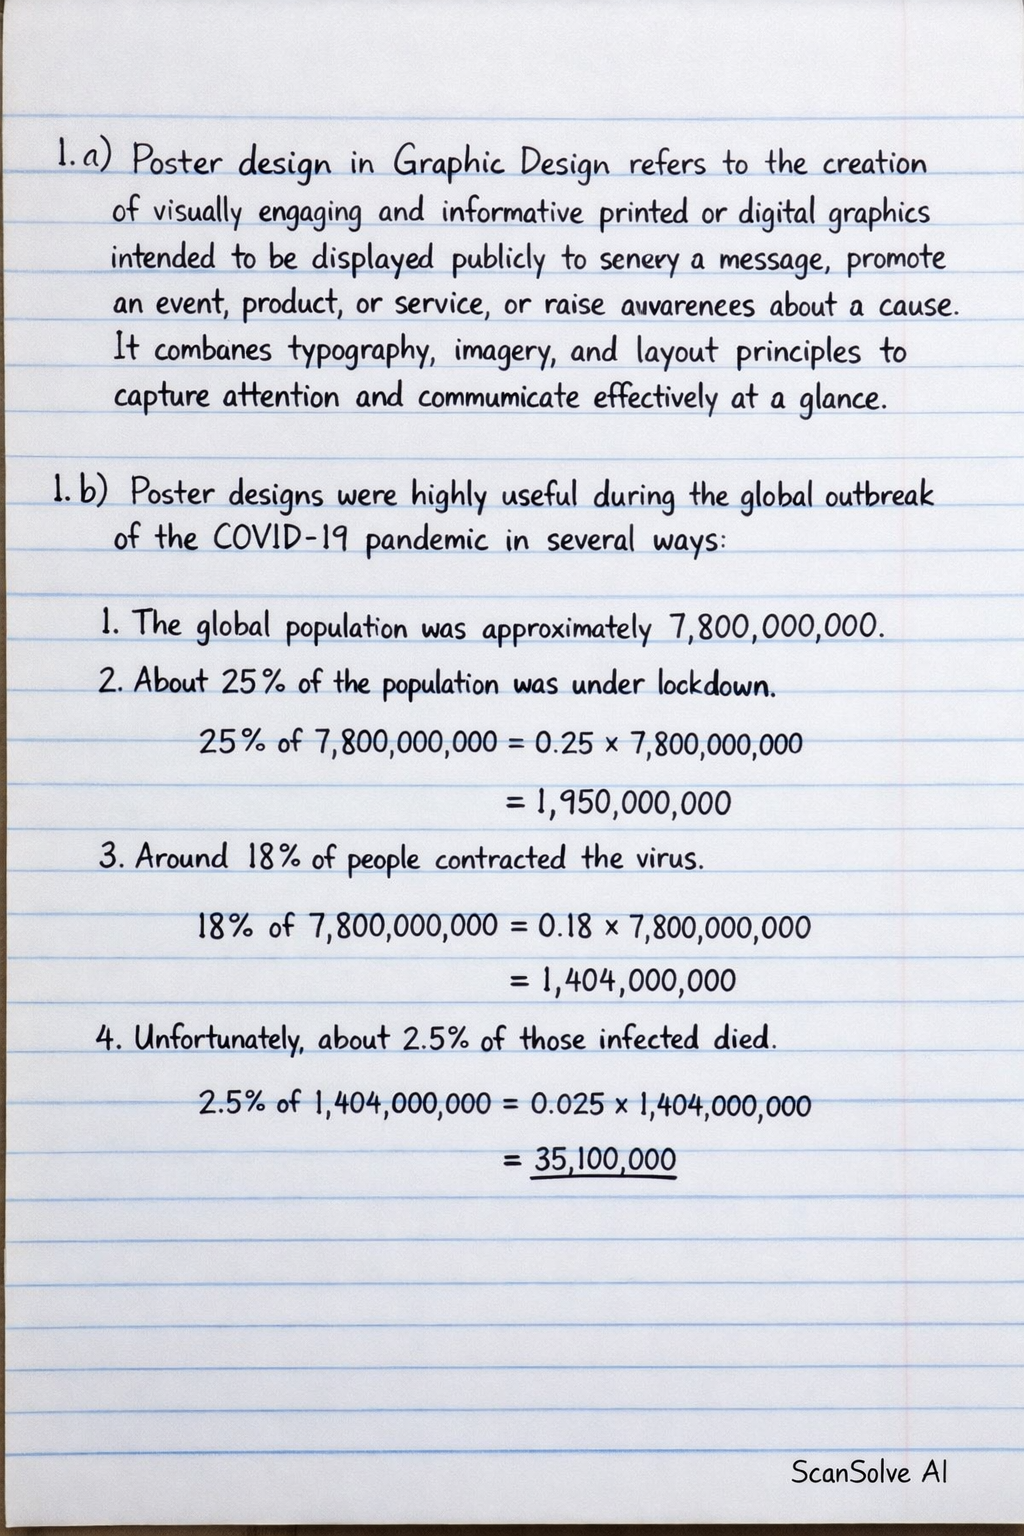 1. a) Poster design in Graphic Design refers to the creation
of visually engaging and informative printed or digital graphics
intended to be displayed publicly to senery a message, promote
an event, product, or service, or raise auvarenees about a cause.
It combanes typography, imagery, and layout principles to
capture attention and commumicate effectively at a glance.
1. b) Poster designs were highly useful during the global outbreak
of the COVID-19 pandemic in several ways:
1. The global population was approximately 7,800,000,000.
2. About 25% of the population was under lockdown.
25% of 7,800,000,000 = 0.25 × 7,800,000,000
= 1,950,000,000
3. Around 18% of people contracted the virus.
18% of 7,800,000,000 = 0.18 × 7,800,000,000
= 1,404,000,000
4. Unfortunately, about 2.5% of those infected died.
2.5% of 1,404,000,000 = 0.025 × 1,404,000,000
= 35,100,000
ScanSolve AI